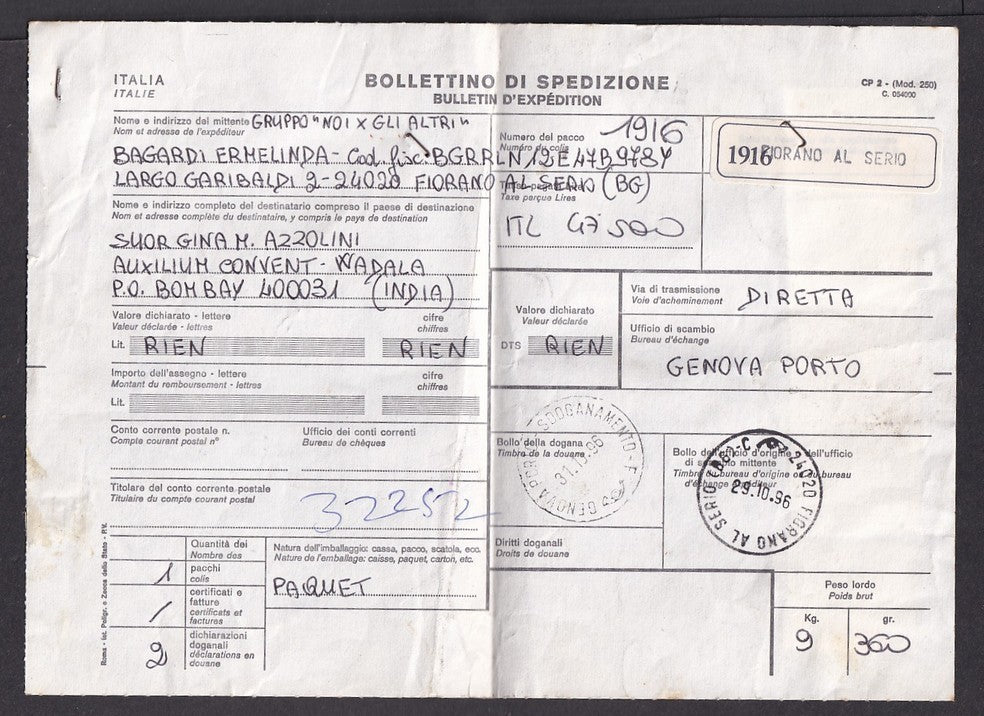 ITALIA
ITALIE
BOLLETTINO DI SPEDIZIONE
BULLETIN D'EXPÉDITION
CP 2 - (Mod. 250)
C. 054000
Nome e indirizzo del mittente GRUPPO "NOI X GLI ALTRI"
Nom et adresse de l'expéditeur
BAGARDI ERMELINDA - Cod. fisc. BGRRLN12E47B978Y
LARGO GARIBALDI 2 - 24020 FIORANO AL SERIO (BG)
Numero del pacco 1916
Numéro du colis
Taxe perçue Lires
ITL 47500
1916 FIORANO AL SERIO
Nome e indirizzo completo del destinatario compreso il paese di destinazione
Nom et adresse complète du destinataire, y compris le pays de destination
SUOR GINA M. AZZOLINI
AUXILIUM CONVENT - WADALA
P.O. BOMBAY 400031 (INDIA)
Valore dichiarato - lettere cifre
Valeur déclarée - lettres chiffres
Lit. RIEN RIEN
Valore dichiarato
Valeur déclarée
DTS RIEN
Via di trasmissione
Voie d'acheminement
DIRETTA
Ufficio di scambio
Bureau d'échange
GENOVA PORTO
Importo dell'assegno - lettere cifre
Montant du remboursement - lettres chiffres
Lit.
Conto corrente postale n.
Compte courant postal n°
Ufficio dei conti correnti
Bureau de chèques
Titolare del conto corrente postale
Titulaire du compte courant postal
32252
Bollo della dogana
Timbre de la douane
SDOGANAMENTO - F.
GENOVA
96
Bollo dell'ufficio d'origine o dell'ufficio
di scambio mittente
Timbre du bureau d'origine ou du bureau
d'échange expéditeur
24020 FIORANO AL SERIO (BG) - C
29.10.96
Diritti doganali
Droits de douane
Quantità dei
Nombre des
1 pacchi
colis
/ certificati e
fatture
certificats et
factures
2 dichiarazioni
doganali
déclarations en
douane
Natura dell'imballaggio: cassa, pacco, scatola, ecc.
Nature de l'emballage: caisse, paquet, carton, etc.
PAQUET
Peso lordo
Poids brut
Kg. gr.
9 360
Roma - Ist. Poligr. e Zecca dello Stato - P.V.